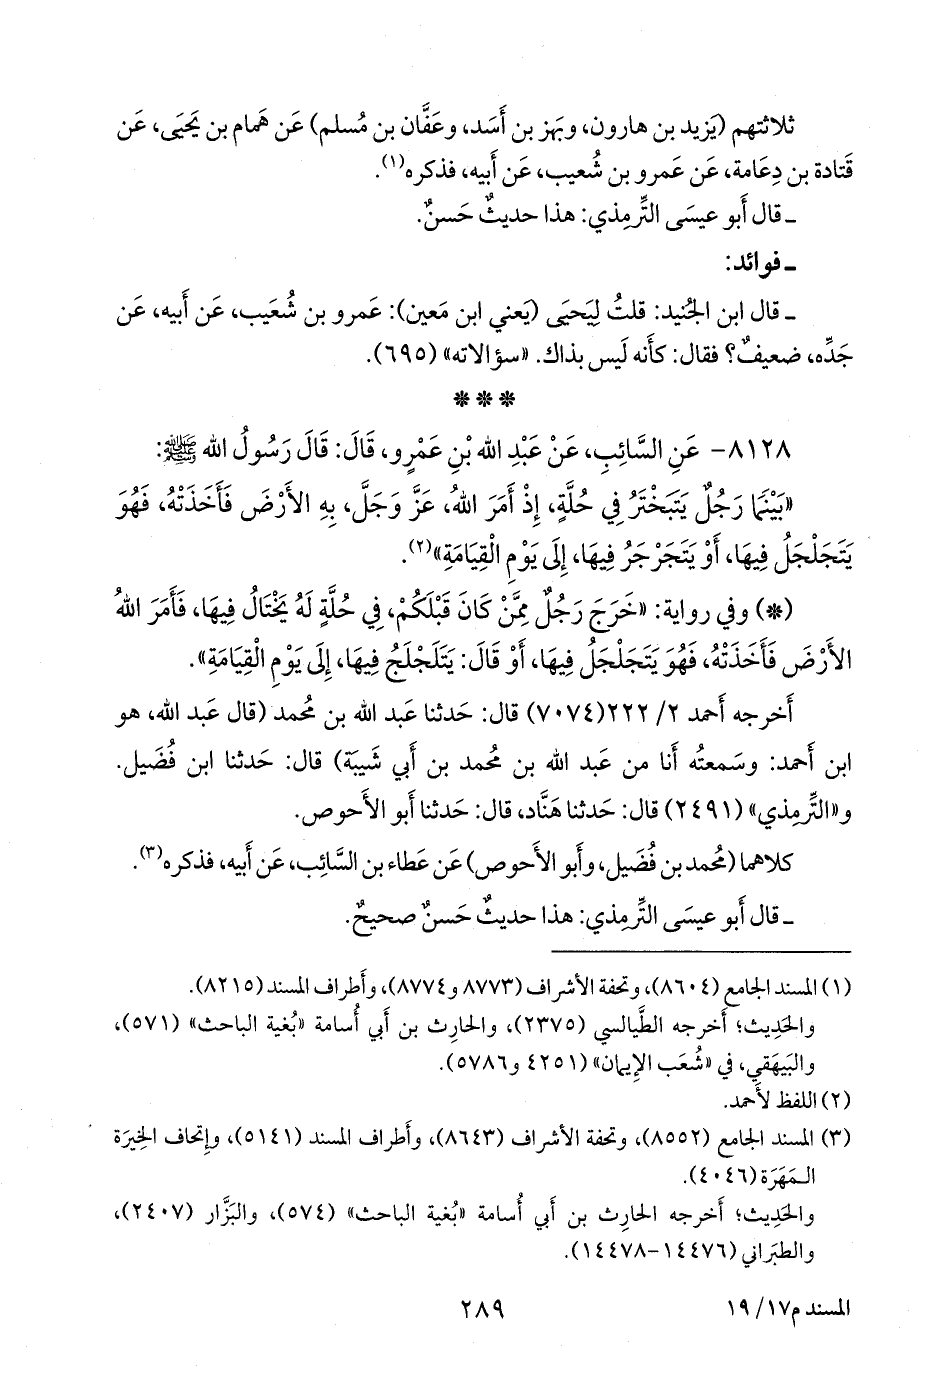 ثلاثتهم (يَزيد بن هارون، وبَهز بن أَسَد، وعَفَّان بن مُسلم) عَن هَمام بن يَحيَى، عَن
قَتادة بن دِعَامة، عَن عَمرو بن شُعيب، عَن أَبيه، فذكره(١).
ـ قال أَبو عيسَى التِّرمِذي: هذا حديثٌ حَسنٌ.
ـ فوائد:
ـ قال ابن الجُنيد: قلتُ لِيَحيَى (يَعني ابن مَعين): عَمرو بن شُعَيب، عَن أَبيه، عَن
جَدِّه، ضعيفٌ؟ فقال: كأَنه لَيس بذاك. «سؤالاته» (٦٩٥).
* * *
٨١٢٨- عَنِ السَّائِبِ، عَنْ عَبْدِ اللهِ بْنِ عَمْرٍو، قَالَ: قَالَ رَسُولُ اللهِ ﷺ:
«بَيْنَمَا رَجُلٌ يَتَبَخْتَرُ فِي حُلَّةٍ، إِذْ أَمَرَ اللهُ، عَزَّ وَجَلَّ، بِهِ الأَرْضَ فَأَخَذَتْهُ، فَهُوَ
يَتَجَلْجَلُ فِيهَا، أَوْ يَتَجَرْجَرُ فِيهَا، إِلَى يَوْمِ الْقِيَامَةِ»(٢).
(*) وفي رواية: «خَرَجَ رَجُلٌ مِمَّنْ كَانَ قَبْلَكُمْ، فِي حُلَّةٍ لَهُ يَخْتَالُ فِيهَا، فَأَمَرَ اللهُ
الأَرْضَ فَأَخَذَتْهُ، فَهُوَ يَتَجَلْجَلُ فِيهَا، أَوْ قَالَ: يَتَلَجْلَجُ فِيهَا، إِلَى يَوْمِ الْقِيَامَةِ».
أَخرجه أَحمد ٢/ ٢٢٢(٧٠٧٤) قال: حَدثنا عَبد الله بن مُحمد (قال عَبد الله، هو
ابن أَحمد: وسَمعتُه أَنا من عَبد الله بن مُحمد بن أَبي شَيبَة) قال: حَدثنا ابن فُضَيل.
و«التِّرمِذي» (٢٤٩١) قال: حَدثنا هَنَّاد، قال: حَدثنا أَبو الأَحوص.
كلاهما (مُحمد بن فُضَيل، وأَبو الأَحوص) عَن عَطاء بن السَّائب، عَن أَبيه، فذكره(٣).
ـ قال أَبو عيسَى التِّرمِذي: هذا حديثٌ حَسنٌ صحيحٌ.
(١) المسند الجامع (٨٦٠٤)، وتحفة الأشراف (٨٧٧٣ و٨٧٧٤)، وأَطراف المسند (٨٢١٥).
والحَدِيث؛ أَخرجه الطَّيالسي (٢٣٧٥)، والحارث بن أَبي أُسامة «بُغية الباحث» (٥٧١)،
والبَيهَقي، في «شُعَب الإِيمان» (٤٢٥١ و٥٧٨٦).
(٢) اللفظ لأَحمد.
(٣) المسند الجامع (٨٥٥٢)، وتحفة الأشراف (٨٦٤٣)، وأَطراف المسند (٥١٤١)، وإِتحاف الخِيرَة
المَهَرَة (٤٠٤٦).
والحَدِيث؛ أَخرجه الحارث بن أَبي أُسامة «بُغية الباحث» (٥٧٤)، والبَزَّار (٢٤٠٧)،
والطبَراني (١٤٤٧٦-١٤٤٧٨).
المسند م١٧/ ١٩
٢٨٩